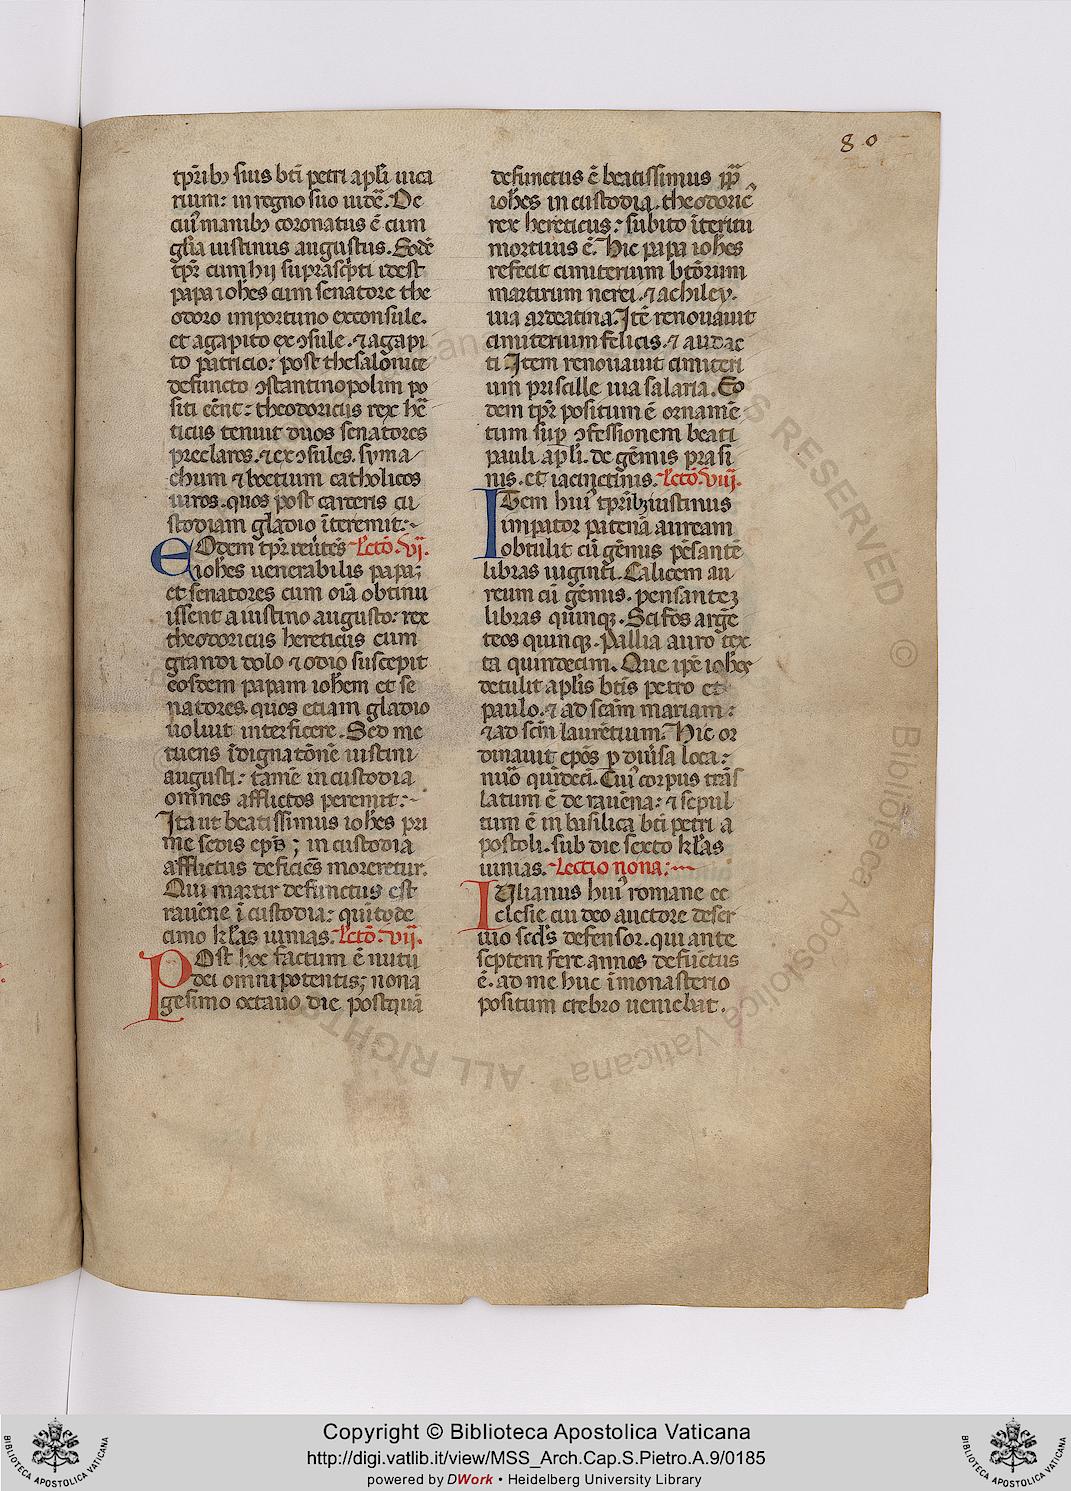 80
tp̄ribꝫ suis bt̄i petri apl̓i uica
rium: in regno suo uidē. De
cui᾽ manibꝫ coronatus ē cum
gl̓ia iustinus augustus. Eodē
tp̄r cum hij suprasc̄pti idest
papa ioh̄es cum senatore the
odoro importuno exconsule.
et agapito exꝯsule. ⁊ agapi
to patricio: post thesalōnice
defuncto ꝯstantinopolim po
siti eēnt: theodoricus rex hē
ticus tenuit duos senatores
preclaros. ⁊ exꝯsules. syma
chum ⁊ boetium catholicos
uiros. quos post carceris cu
stodiam gladio īteremit:~
EOdem tp̄r reūtēs Lectō. vj.
ioh̄es uenerabilis papa;
et senatores cum oīa obtinu
issent a iustino augusto: rex
theodoricus hereticus cum
grandi dolo ⁊ odio suscepit
eosdem papam ioh̄em et se
natores. quos etiam gladio
uoluit interficere. Sed me
tuens īdignatōnē iustini
augusti: tamē in custodia
omnes afflictos peremit:~
Ita ut beatissimus ioh̄es pri
me sedis ep̄s; in custodia
afflictus deficiēs moreretur.
Qui martir defunctus est
rauēne ī custodia: quītode
cimo kl̓as iunias. Lectō. vij.
POst hoc factum ē nutu
dei omnipotentis; nona
gesimo octauo die postquā
defunctus ē beatissimus pp̄
ioh̄es in custodia. theodoric᾽
rex hereticus: subito īteritu
mortuus ē. Hic papa ioh̄es
refecit cimiterium bt̄orum
martirum nerei. ⁊ achiley.
uia ardeatina. Itē renouauit
cimiterium felicis. ⁊ audac
ti Item renouauit cimiteri
um priscille uia salaria. Eo
dem tp̄r positum ē ornamē
tum sup̱ ꝯfessionem beati
pauli apl̓i. de gēmis prasi
nis. et iacinctinis. Lectō. viij.
ITem hui᾽ tp̄ribꝫ iustinus
imp̱ator patenā auream
obtulit cū gēmis pēsantē
libras uiginti. Calicem au
reum cū gēmis. pensanteꝫ
libras quinqꝫ. Scifos argē
teos quinqꝫ. Pallia auro tex
ta quindecim. Que ip̄e ioh̄es
detulit apl̓is bt̄is petro et
paulo. ⁊ ad sc̄am mariam:
⁊ ad sc̄m laurētium. Hic or
dinauit ep̄os p̱ diu̓sa loca:
nuo᷑ quīdecī. Cui᾽ corpus trās
latum ē de rauēna: ⁊ sepul
tum ē in basilica bt̄i petri a
postoli. sub die sexto kl̓as
iunias. Lectio nona:~
IUlianus hui᾽ romane ec
clesie cui deo auctore deser
uio sed̓s defensor. qui ante
septem fere annos defūctus
ē. ad me huc ī monasterio
positum crebro ueniebat.
ALL RIGHTS RESERVED © Biblioteca Apostolica Vaticana
Copyright © Biblioteca Apostolica Vaticana
http://digi.vatlib.it/view/MSS_Arch.Cap.S.Pietro.A.9/0185
powered by DWork • Heidelberg University Library
BIBLIOTECA APOSTOLICA VATICANA
BIBLIOTECA APOSTOLICA VATICANA